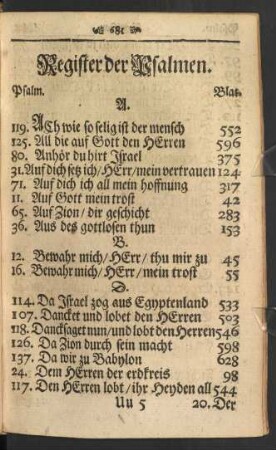 681
Register der Psalmen.
Psalm. Blat.
A.
119. ACh wie so selig ist der mensch 552
125. All die auf Gott den HErren 596
80. Anhör du hirt Israel 375
31. Auf dich setz ich/HErr/mein vertrauen 124
71. Auf dich ich all mein hoffnung 317
11. Auf Gott mein trost 42
65. Auf Zion/ dir geschicht 283
36. Aus des gottlosen thun 153
B.
12. Bewahr mich/HErr/ thu mir zu 45
16. Bewahr mich/ HErr/ mein trost 55
D.
114. Da Israel zog aus Egyptenland 533
107. Dancket und lobet den HErren 502
118. Dancksaget nun/und lobt den Herren 546
126. Da Zion durch sein macht 598
137. Da wir zu Babylon 628
24. Dem HErren der erdkreis 98
117. Den HErren lobt/ihr Heyden all 544
Uu 5 20. Der